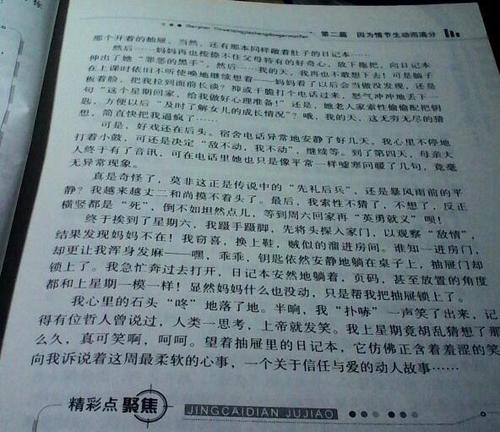 第二篇 因为情节生动而满分
那个开着的抽屉，当然，还有那本同样敞着肚子的日记本……
然后——妈妈再也按捺不住父母特有的好奇心，放下拖把，向日记本
伸出了她“罪恶的黑手”，然后——我的天，我再也不敢想下去！可是脑子
在上课时依旧不听使唤地继续想着——妈妈看了以后会当做没发现，还是
板着脸，把我拉到面前长谈？抑或干脆打个电话过来，怒气冲冲地丢下一
句“这个星期回家，给我做好心理准备！”还是，她老人家索性偷偷配把钥
匙，方便以后“及时了解女儿的成长情况”？哦，我的天，这无穷无尽的猜
想，简直快把我逼疯了……
可是，好戏还在后头。宿舍电话异常地安静了好几天，我心里不停地
打着小鼓，可还是决定“敌不动，我不动”，继续等。到了第四天，母亲大
人终于有了音讯，可在电话里她也只是像平常一样嘘寒问暖了几句，竟毫
无异常现象。
真是奇怪了，莫非这正是传说中的“先礼后兵”，还是暴风雨前的平
静？我越来越丈二和尚摸不着头了。最后，我索性不猜了，不想了，反正
横竖都是“死”，倒不如坦然点儿，等到周六回家再“英勇就义”呗！
终于挨到了星期六，我蹑手蹑脚，先将头探入家门，以观察“敌情”，
结果发现妈妈不在！我窃喜，换上鞋，贼似的溜进房间。谁知一进房门，
却更让我浑身发麻——嘿，乖乖，钥匙依然安静地躺在桌子上，抽屉门却
锁上了。我急忙奔过去打开，日记本安然地躺着，页码，甚至放置的角度
都和上星期一模一样！显然妈妈什么也没动，只是帮我把抽屉锁上了。
我心里的石头“咚”地落了地。半晌，我“扑哧”一声笑了出来，记
得有位哲人曾说过，人类一思考，上帝就发笑。我上星期竟胡乱猜想了那
么久，真可笑啊，呵呵。望着抽屉里的日记本，它仿佛正含着羞涩的笑
向我诉说着这周最柔软的心事，一个关于信任与爱的动人故事……
精彩点 聚焦 JINGCAIDIAN JUJIAO